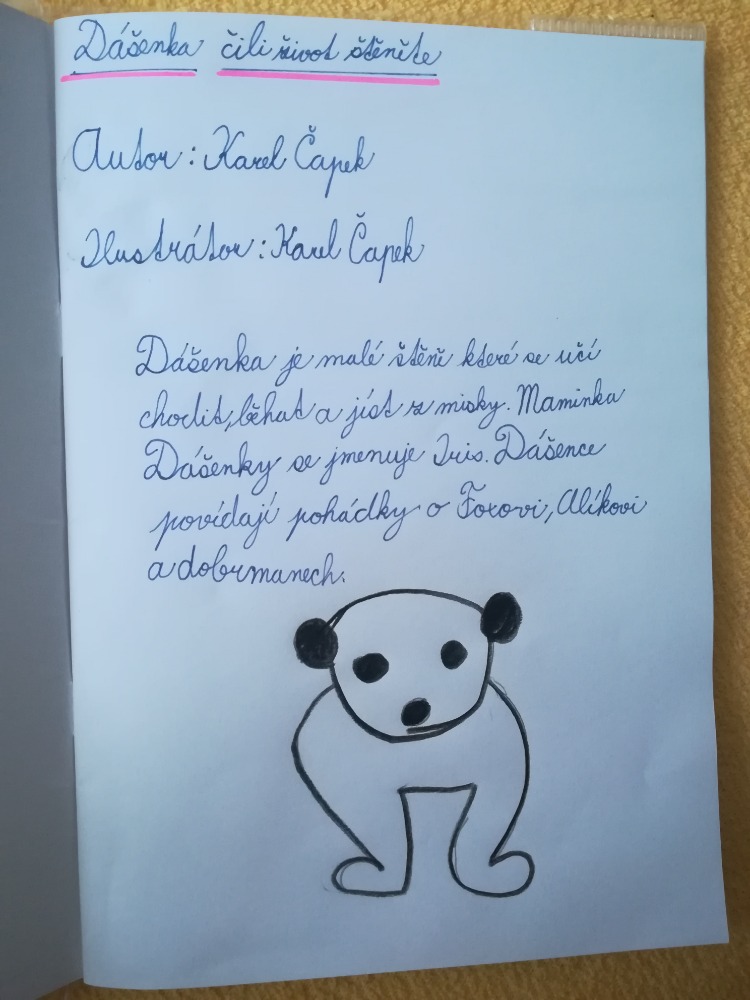 Dášenka čili život štěněte
Autor: Karel Čapek
Ilustrátor: Karel Čapek
Dášenka je malé štěně které se učí
chodit, běhat a jíst z misky. Maminka
Dášenky se jmenuje Iris. Dášence
povídají pohádky o Foxovi, Alíkovi
a dobrmanech.